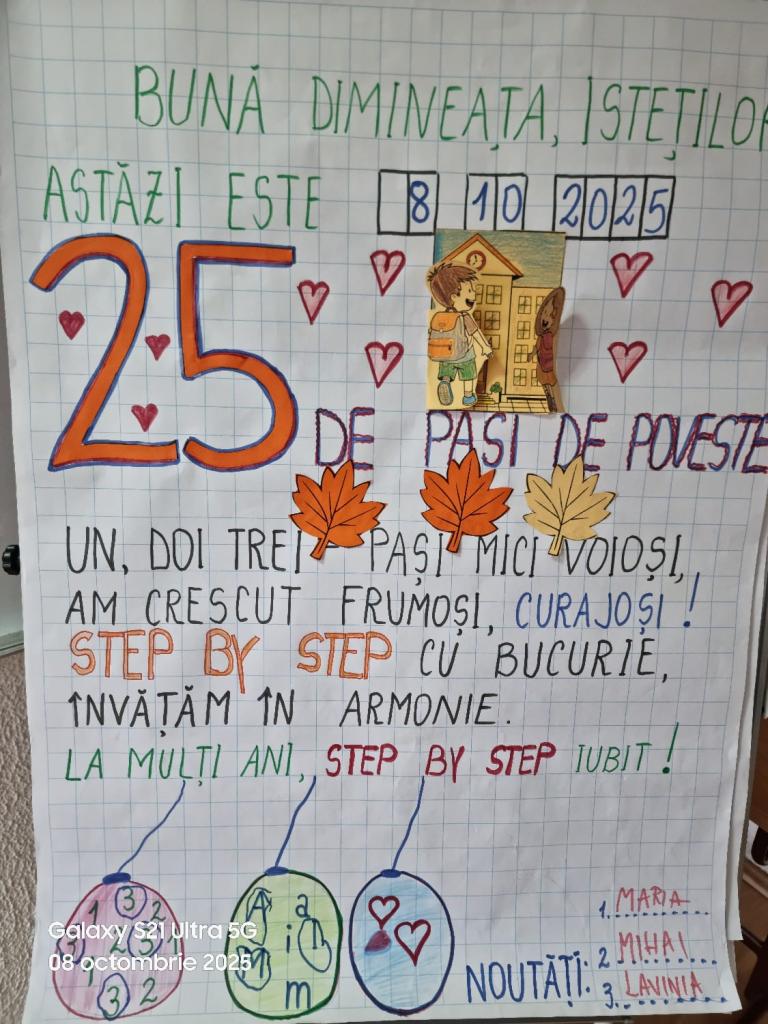 BUNĂ DIMINEAȚA, ISTEȚILOR
ASTĂZI ESTE 8 10 2025
25 DE PASI DE POVESTE
UN, DOI TREI - PAȘI MICI VOIOȘI,
AM CRESCUT FRUMOȘI, CURAJOȘI!
STEP BY STEP CU BUCURIE,
ÎNVĂȚĂM ÎN ARMONIE.
LA MULȚI ANI, STEP BY STEP IUBIT!
1 3 2
2 3 1
1
3 2
A a
i
M
m
NOUTĂȚI:
1. MARIA
2 MIHAI
3. LAVINIA
Galaxy S21 Ultra 5G
08 octombrie 2025